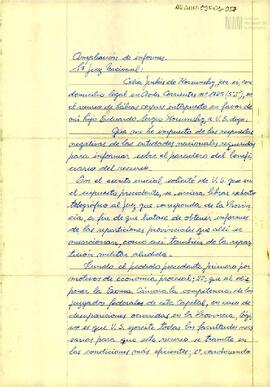 Ampliación de informes.
Sr. Juez Nacional:
Celia Jinkis de Korsunsky por sí, con
domicilio legal en Avda Corrientes nº
el recurso de hábeas corpus interpuesto en favor de
mi hijo Eduardo Sergio Korsunsky, a V.S. digo:
Que me he impuesto de las respuestas
negativas de las autoridades nacionales requeridas
para informar sobre el paradero del benefi-
ciario del recurso.
En el escrito inicial solicité de V.S. que en
el supuesto precedente, se sirviera librar exhorto
telegráfico al juez que corresponda de la Provin-
cia, a fin de que tratara de obtener informes
de las reparticiones provinciales que allí se
mencionan, como así también de la repar-
tición militar aludida.
Fundo el pedido precedente, primero por
motivos de economía procesal; 2º, que al acep-
tar la Excma Cámara la competencia de los
juzgados federales de esta Capital, en caso de
desapariciones ocurridas en la Provincia, lógi-
co es que V.S. goce de todas las facultades nece-
sarias para que este recurso se tramite en
las condiciones más eficientes; 3º,